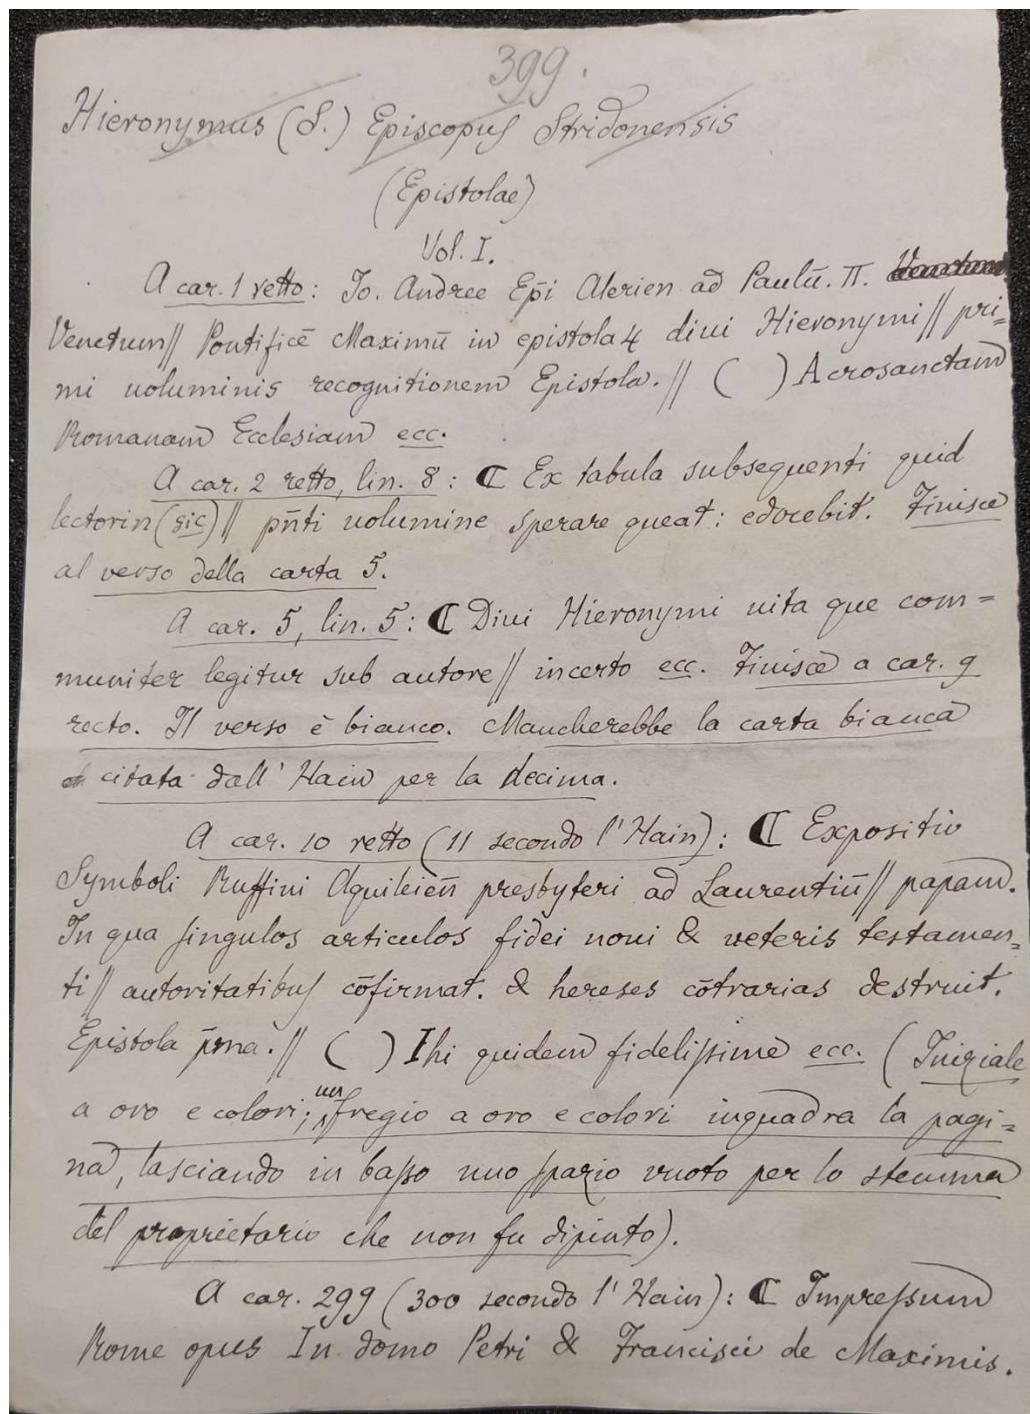 399.
Hieronymus (S.) Episcopus Stridonensis
(Epistolae)
Vol. I.
A car. 1 retto: Io. Andree Epī Alerien ad Paulū. II.
Venetum // Pontificē Maximū in epistola4 diui Hieronymi // pri=
mi uoluminis recognitionem Epistola. // ( ) Acrosanctam
Romanam Ecclesiam ecc.
A car. 2 retto, lin. 8: ℂ Ex tabula subsequenti quid
lectorin (sic) // pn̄ti uolumine sperare queat: edocebit. Finisce
al verso della carta 5.
A car. 5, lin. 5: ℂ Diui Hieronymi uita que com=
muniter legitur sub autore // incerto ecc. Finisce a car. 9
recto. Il verso è bianco. Mancherebbe la carta bianca
citata dall' Hain per la decima.
A car. 10 retto (11 secondo l'Hain): ℂ Expositio
Symboli Ruffini Aquileien̄ presbyteri ad Laurentiū // papam.
In qua singulos articulos fidei noui & veteris testamen=
ti // autoritatibus cōfirmat. & hereses cōtrarias destruit.
Epistola p̄ma. // ( ) Ihi quidem fidelissime ecc. (Iniziale
a oro e colori; un fregio a oro e colori inquadra la pagi=
na, lasciando in basso uno spazio vuoto per lo stemma
del proprietario che non fu dipinto).
A car. 299 (300 secondo l'Hain): ℂ Impressum
Rome opus In domo Petri & Francisci de Maximis.